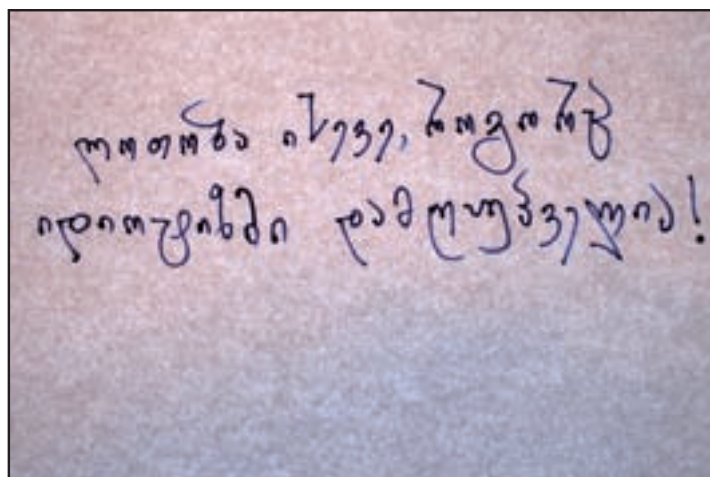 ლოთობა ისევე, როგორც
იდიოტიზმი დამღუპველია!